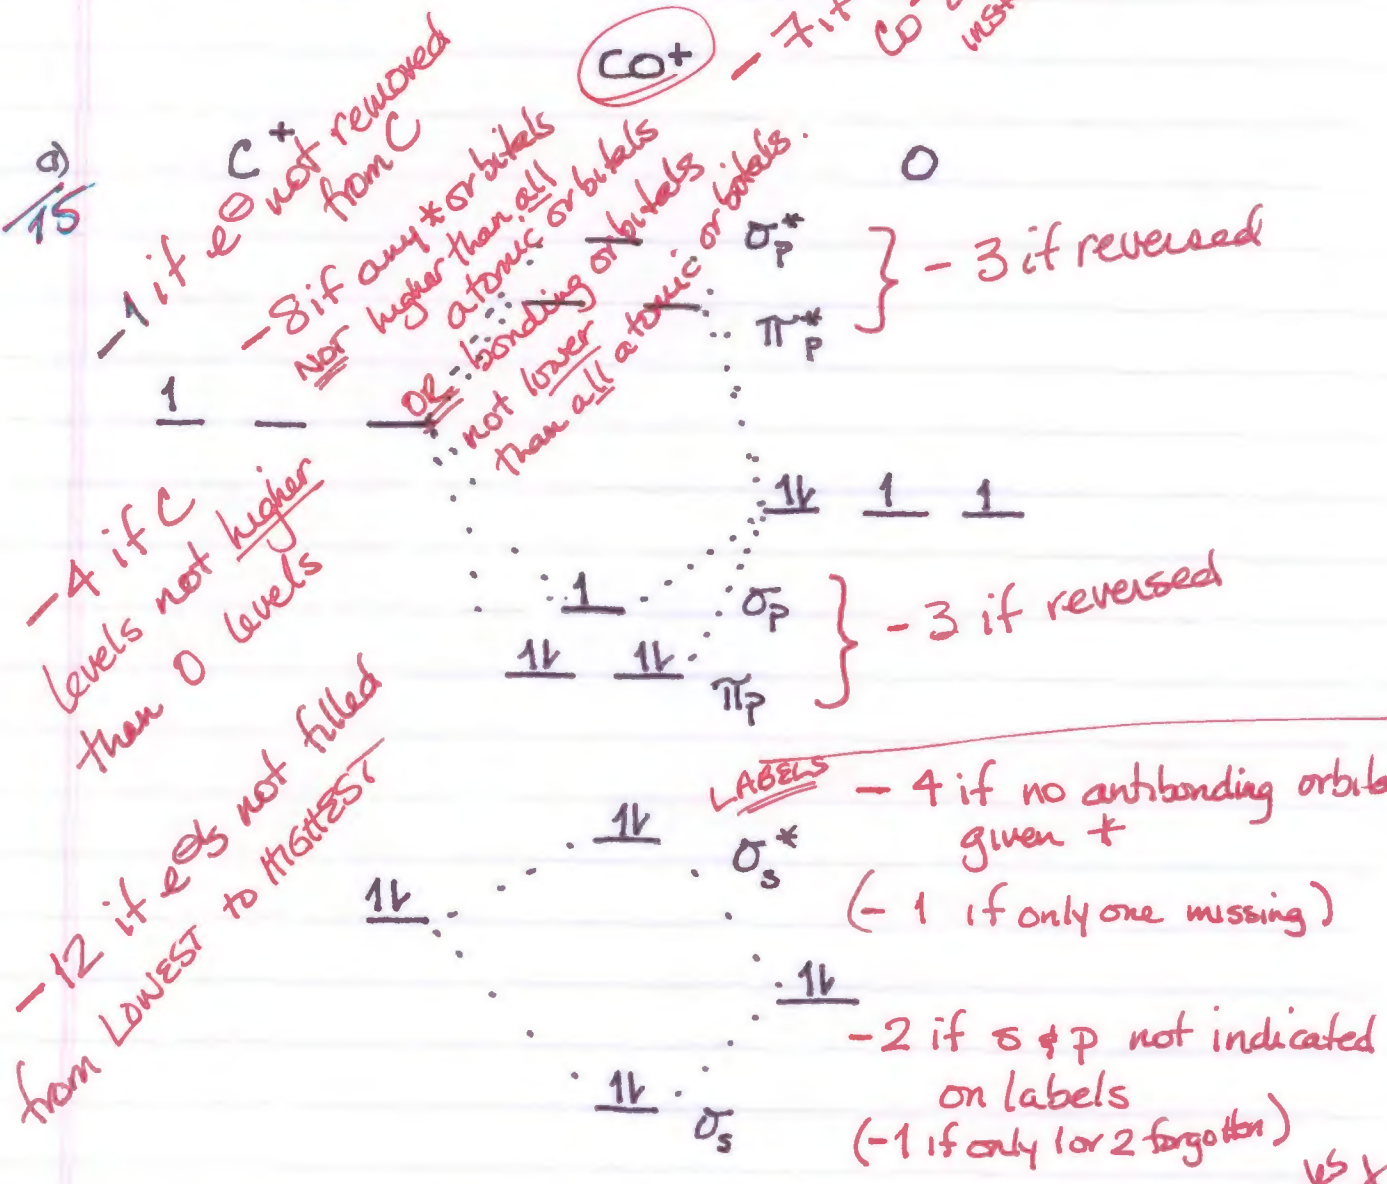 CO+
- 7 if
CO-
inst
a)
/15
C+
O
-1 if e⊖ not removed
from C
-8 if any * orbitals
NOT higher than all
atomic orbitals
OR bonding orbitals
not lower
than all atomic orbitals.
σp*
πp*
- 3 if reversed
1
1L 1 1
-4 if C
levels not higher
than O levels
1
σp
1L 1L
πp
- 3 if reversed
-12 if e⊖s not filled
from LOWEST to HIGHEST
LABELS
- 4 if no antibonding orbita
given *
(- 1 if only one missing)
1L
σs*
1L
1L
-2 if s & p not indicated
on labels
(-1 if only 1 or 2 forgotten)
1L
σs